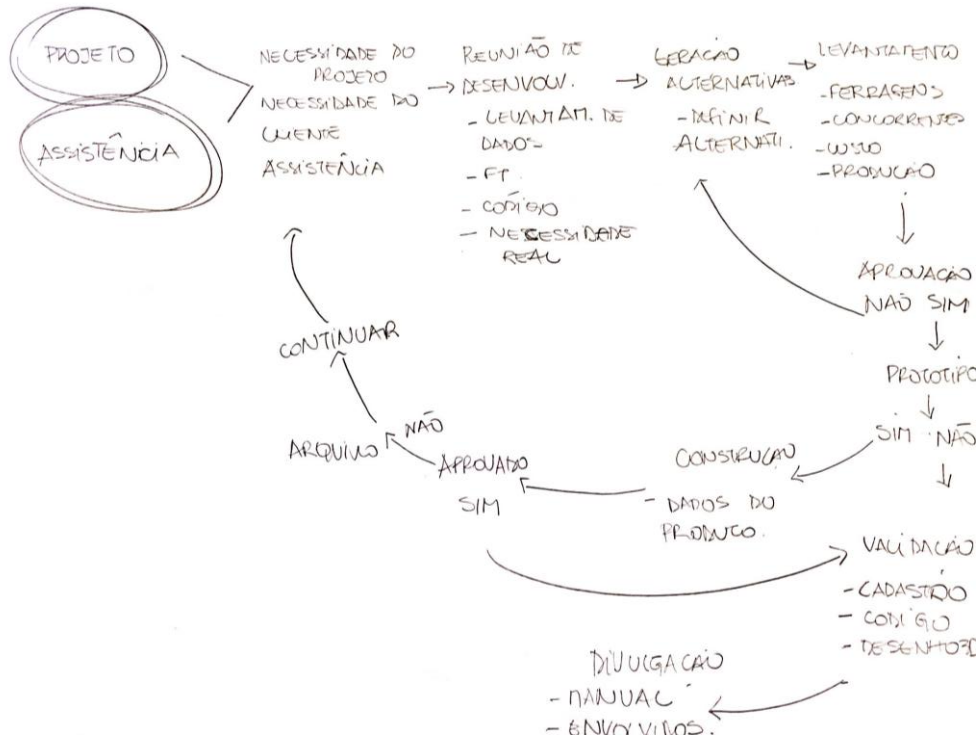 PROJETO
ASSISTÊNCIA
NECESSIDADE DO
PROJETO
NECESSIDADE DO
CLIENTE
ASSISTÊNCIA
REUNIÃO DE
DESENVOLV.
- LEVANTAM. DE
DADOS
- FT.
- CODIGO
- NECESSIDADE
REAL
GERAÇÃO
ALTERNATIVAS
- DEFINIR
ALTERNATI.
LEVANTAMENTO
- FERRAGENS
- CONCORRENTES
- CUSTO
- PRODUÇÃO
APROVAÇÃO
NÃO SIM
PROTOTIPO
SIM NÃO
CONSTRUÇÃO
- DADOS DO
PRODUTO.
APROVADO
SIM
NÃO
ARQUIVO
CONTINUAR
VALIDAÇÃO
- CADASTRO
- CODIGO
- DESENHO 3D
DIVULGAÇÃO
- MANUAL
- ENVOLVIDOS.